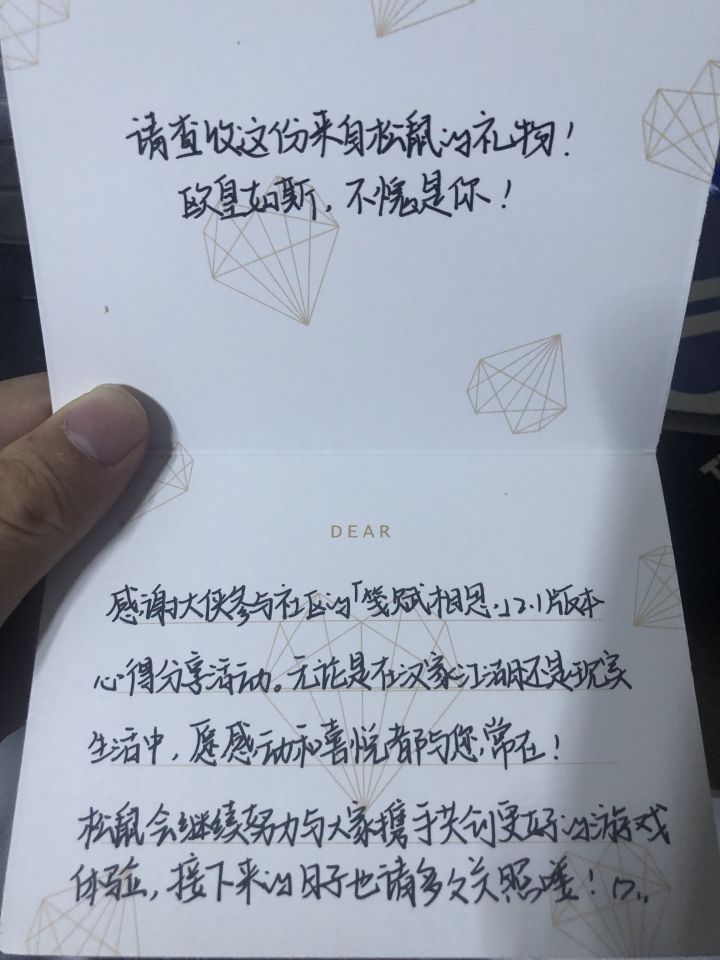 请查收这份来自松鼠的礼物！
欧皇如斯，不愧是你！
DEAR
感谢大侠参与社区的「笺赋相思·12.1版本
心得分享活动。无论是在汉家江湖还是现实
生活中，愿感动和喜悦都与您常在！
松鼠会继续努力与大家携手共创更好的游戏
体验，接下来的日子也请多多关照喽！